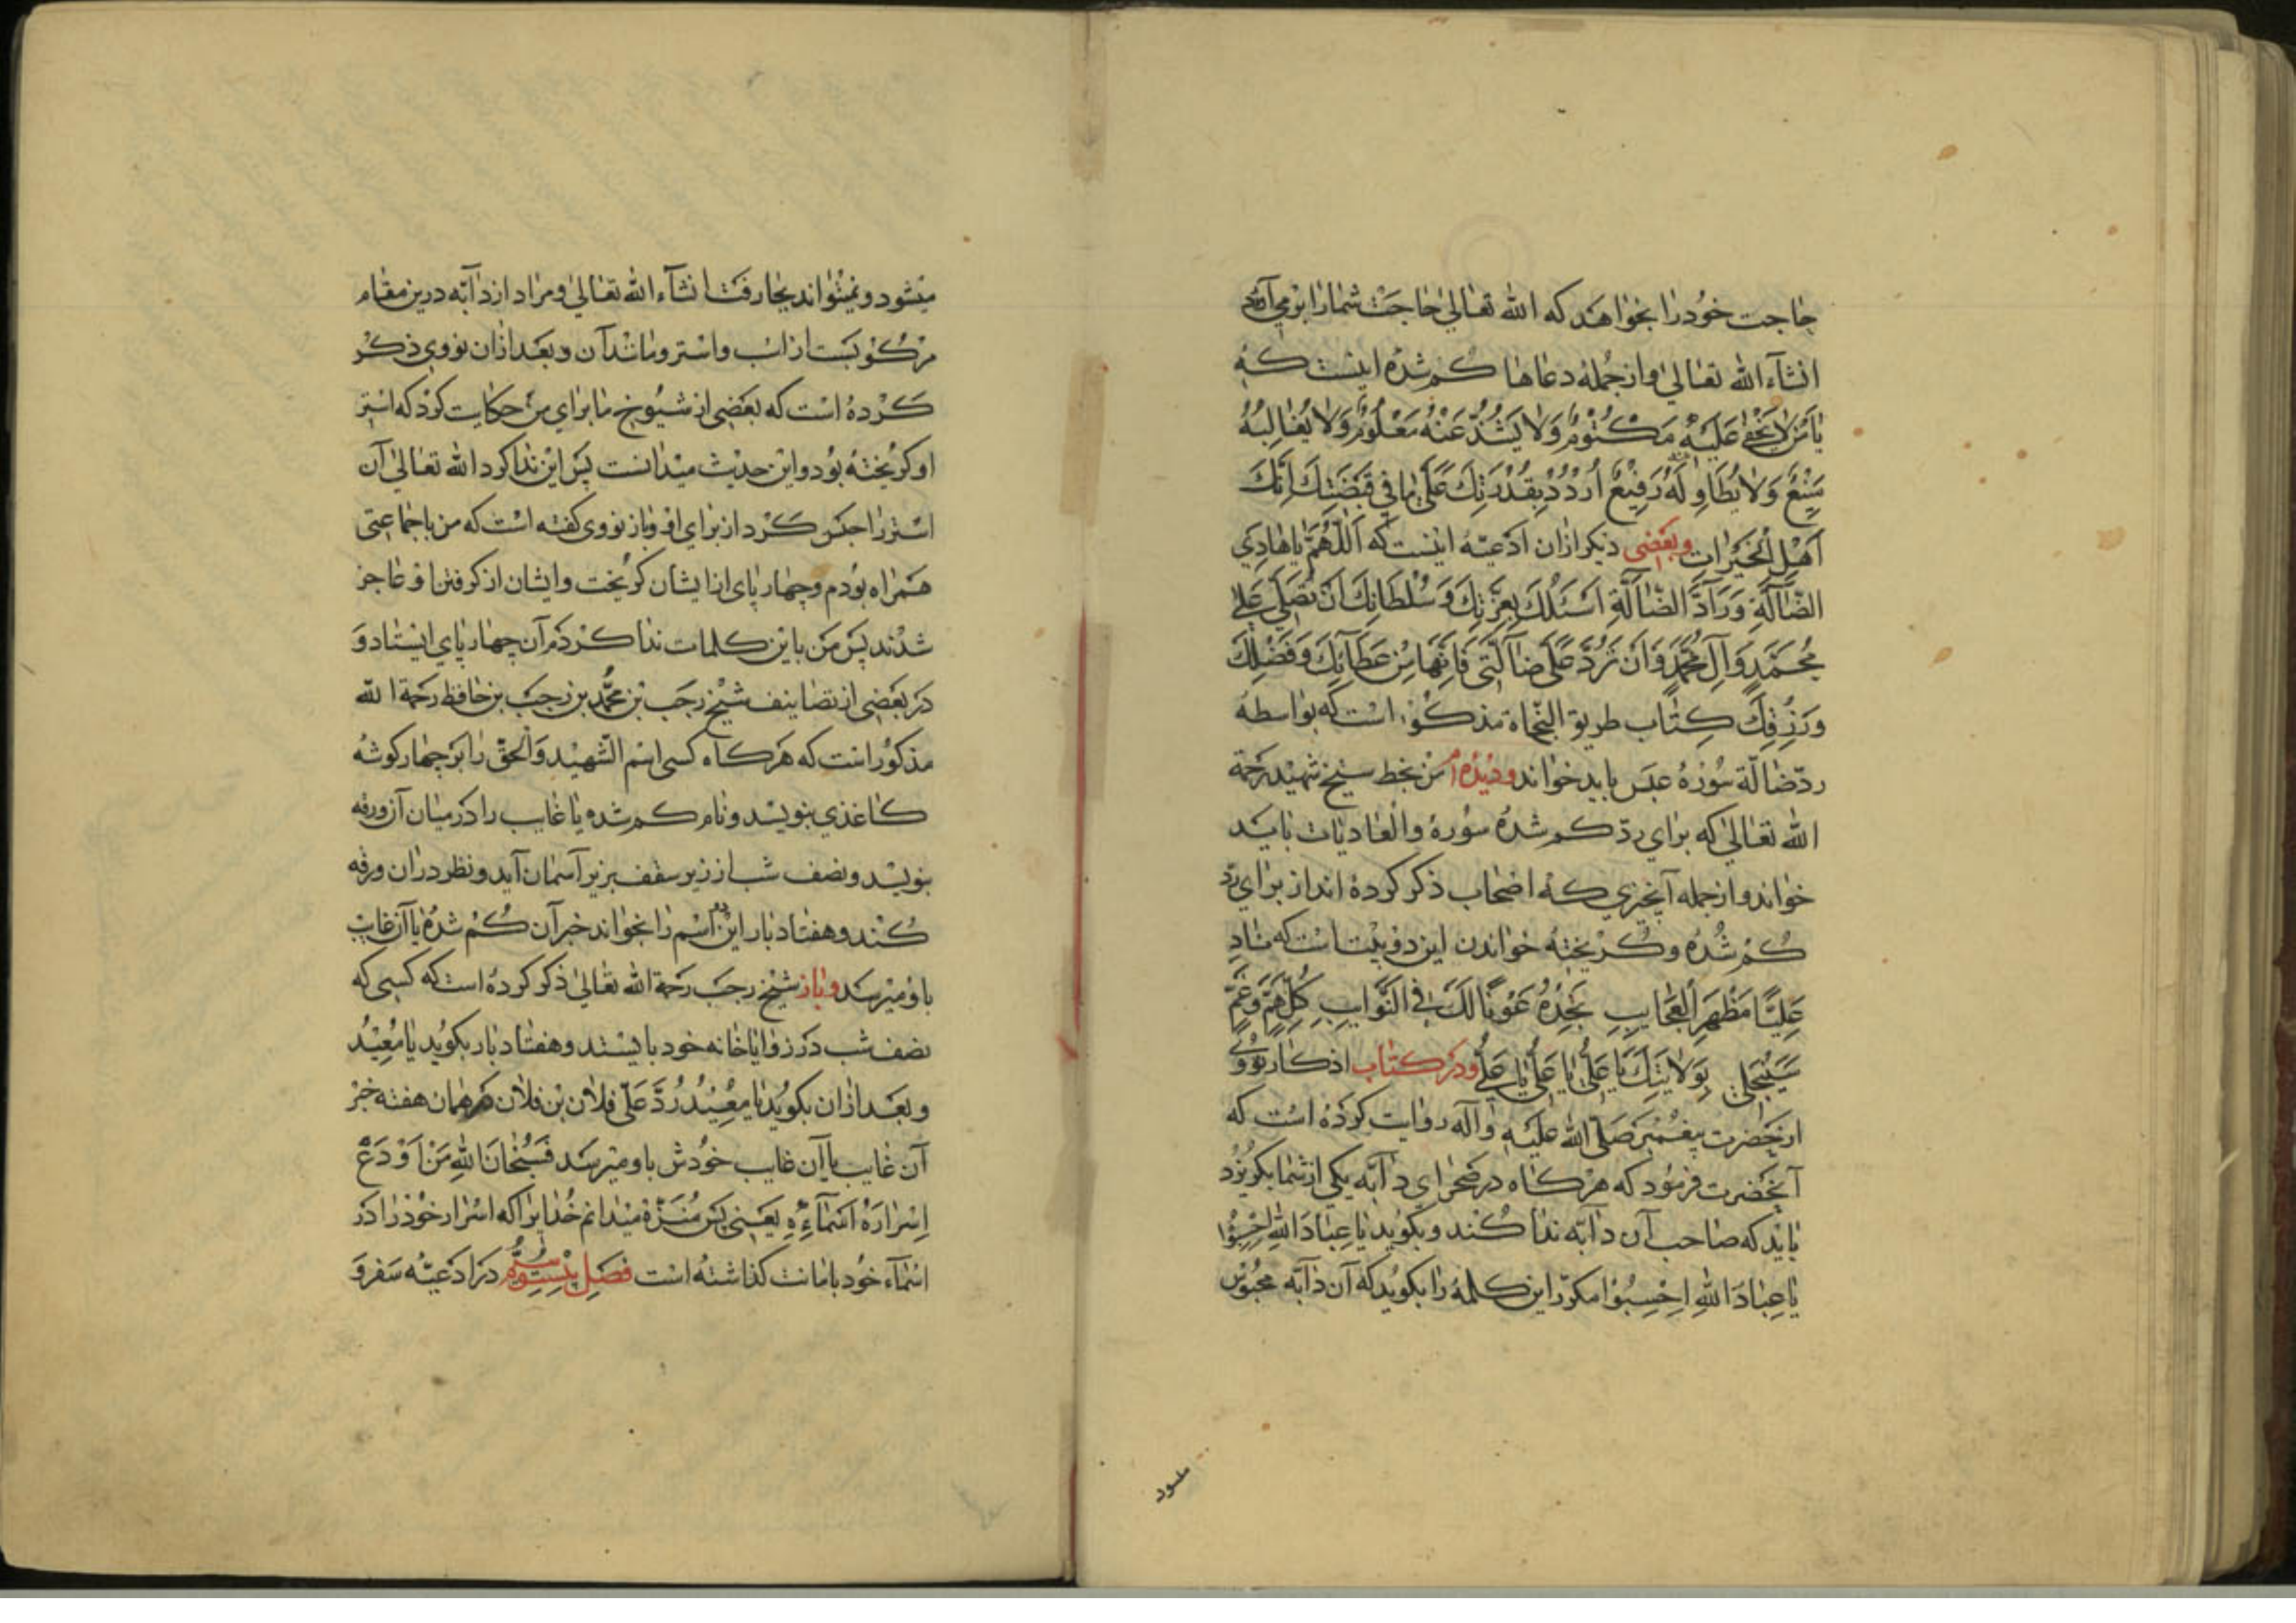 حاجت خود را بخواهد که الله تعالی حاجت شما را برمی آرد
انشاء الله تعالی و از جمله دعاها کم شده اینست که
یا من لا یخفی علیه مکتوم ولا یشذ عنه معلوم ولا یغالبه
منیع ولا یطاوله رفیع اردد بقدرتک علی ما فی قبضتک انک
اهل الخیرات وبعضی دیکر ازان ادعیه اینست که اللهم یا هادی
الضالة وراد الضالة اسئلک بعزتک وسلطانک ان تصلی علی
محمد وال محمد وان ترد علی ضالتی فانها من عطائک وفضلک
ورزقک کتاب طریق النجاة مذکور است که بواسطه
رد ضالة سوره عبس باید خواند ودیده ام من بخط شیخ شهید رحمة
الله تعالی که برای رد کم شده سورة والعادیات باید
خواند و از جمله آنچزی که اصحاب ذکر کرده اند از برای رد
کم شده و کریخته خواندن این دو بیت است که ناد
علیا مظهر العجایب تجده عونا لک فی النوایب کل هم وغم
سینجلی بولایتک یا علی یا علی یا علی ودر کتاب اذکار نووی
از حضرت پیغمبر صلی الله علیه وآله روایت کرده است که
آنحضرت فرمود که هر کاه در صحرای دآبه یکی از شما بکریزد
باید که صاحب آن دآبه ندا کند و بکوید یا عباد الله احبسوا
یا عباد الله احبسوا مکرر این کلمه را بکوید که آن دآبه محبوس
میشود
میشود و نمیتواند بجا رفت انشآء الله تعالی و مراد از دآبه درین مقام
مرکوبست از اسب و استر و مانند آن و بعد ازان نووی ذکر
کرده است که بعضی از شیوخ ما برای من حکایت کرد که استر
او کریخته بود و این حدیث میدانست پس این ندا کرد الله تعالی آن
استر را حبس کرد از برای او و باز نووی کفته است که من با جماعتی
همراه بودم و چهار پای از ایشان کریخت و ایشان از کرفتن او عاجز
شدند پس من باین کلمات ندا کردم آن چهار پای ایستاد و
در بعضی از تصانیف شیخ رجب بن محمد بن رجب بن حافظ رحمة الله
مذکور است که هر کاه کسی اسم الشهید والحق را بر چهار کوشه
کاغذی بنویسد و نام کم شده یا غایب را در میان آن ورقه
بنویسد و نصف شب از زیر سقف بزیر آسمان آید و نظر دران ورقه
کند و هفتاد بار این دو اسم را بخواند خبر آن کم شده یا آن غایب
باو میرسد وباز شیخ رجب رحمة الله تعالی ذکر کرده است که کسی که
نصف شب در زوایا خانه خود بایستد و هفتاد بار بکوید یا معید
و بعد ازان بکوید یا معید رد علی فلان بن فلان در همان هفته خبر
آن غایب یا آن غایب خودش باو میرسد فسبحان الله من اودع
اسراره اسمآءه یعنی پس منزه میدانم خدایرا که اسرار خود را در
اسمآء خود بامانت کذاشته است فصل بیست وسیوم در ادعیه سفر و